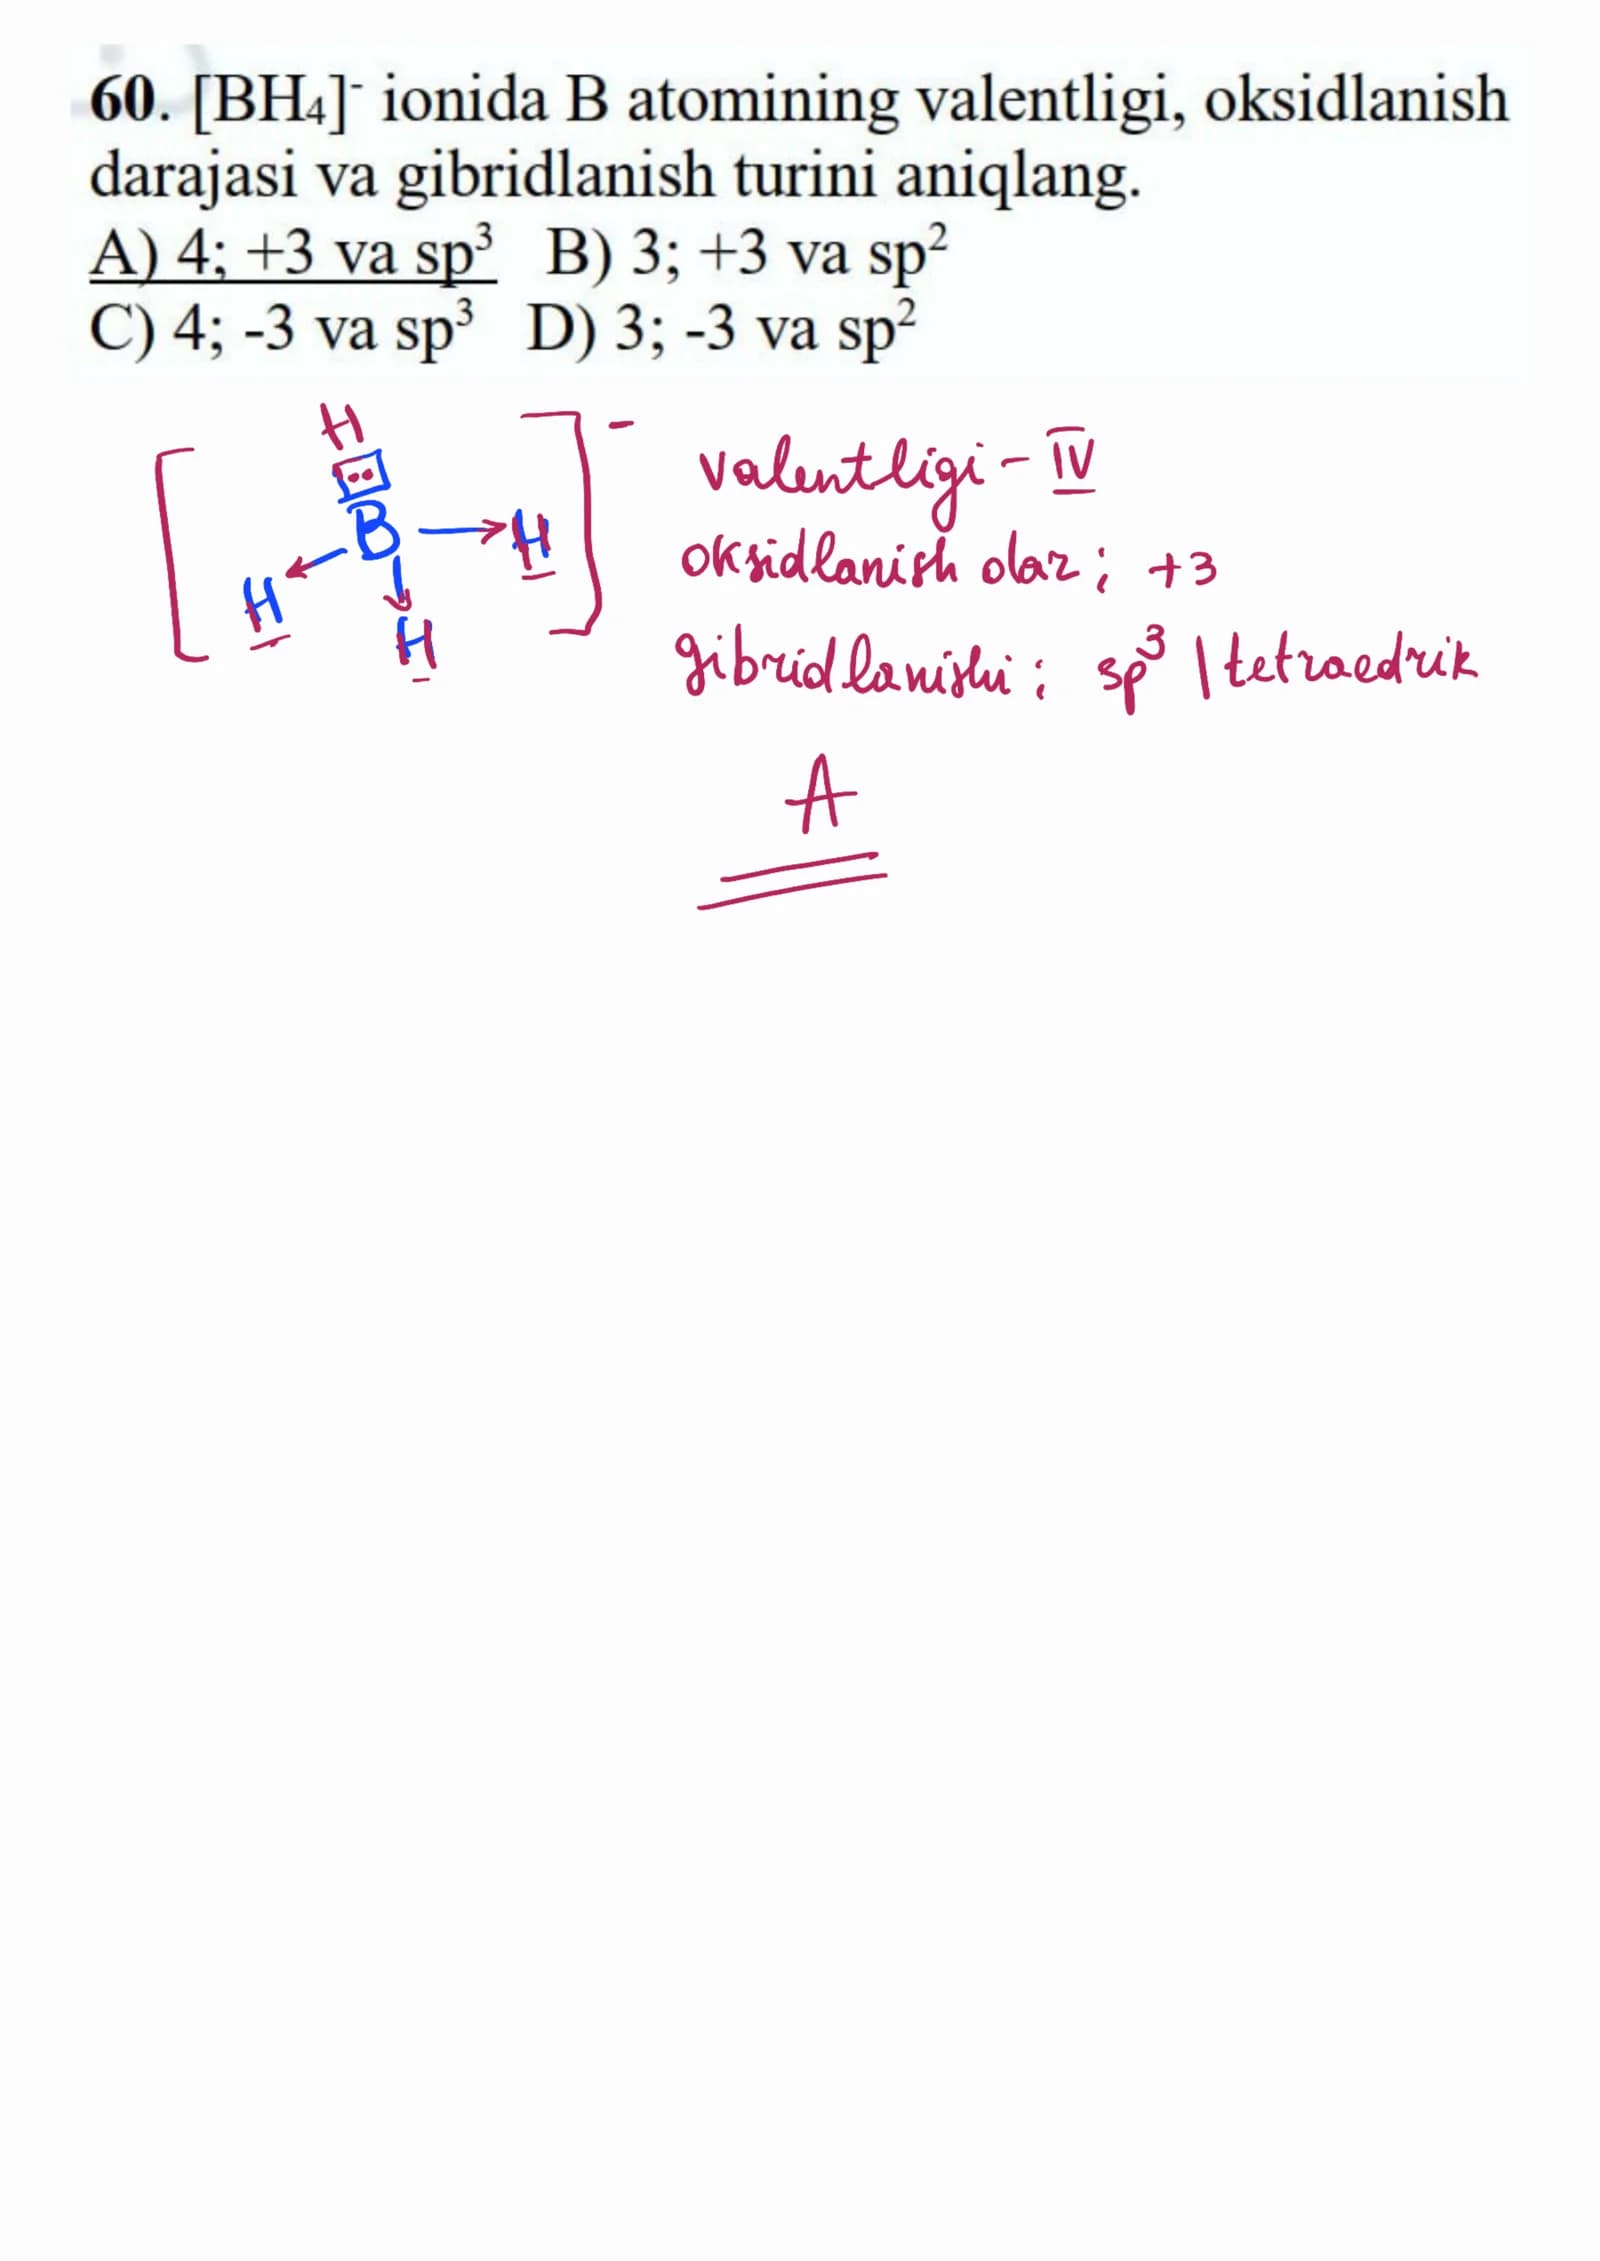 60. [BH₄]⁻ ionida B atomining valentligi, oksidlanish
darajasi va gibridlanish turini aniqlang.
A) 4; +3 va sp³ B) 3; +3 va sp²
C) 4; -3 va sp³ D) 3; -3 va sp²
H
B
H
H
H
-
valentligi - IV
oksidlanish dar: +3
gibridlanishi: sp³ | tetraedrik
A